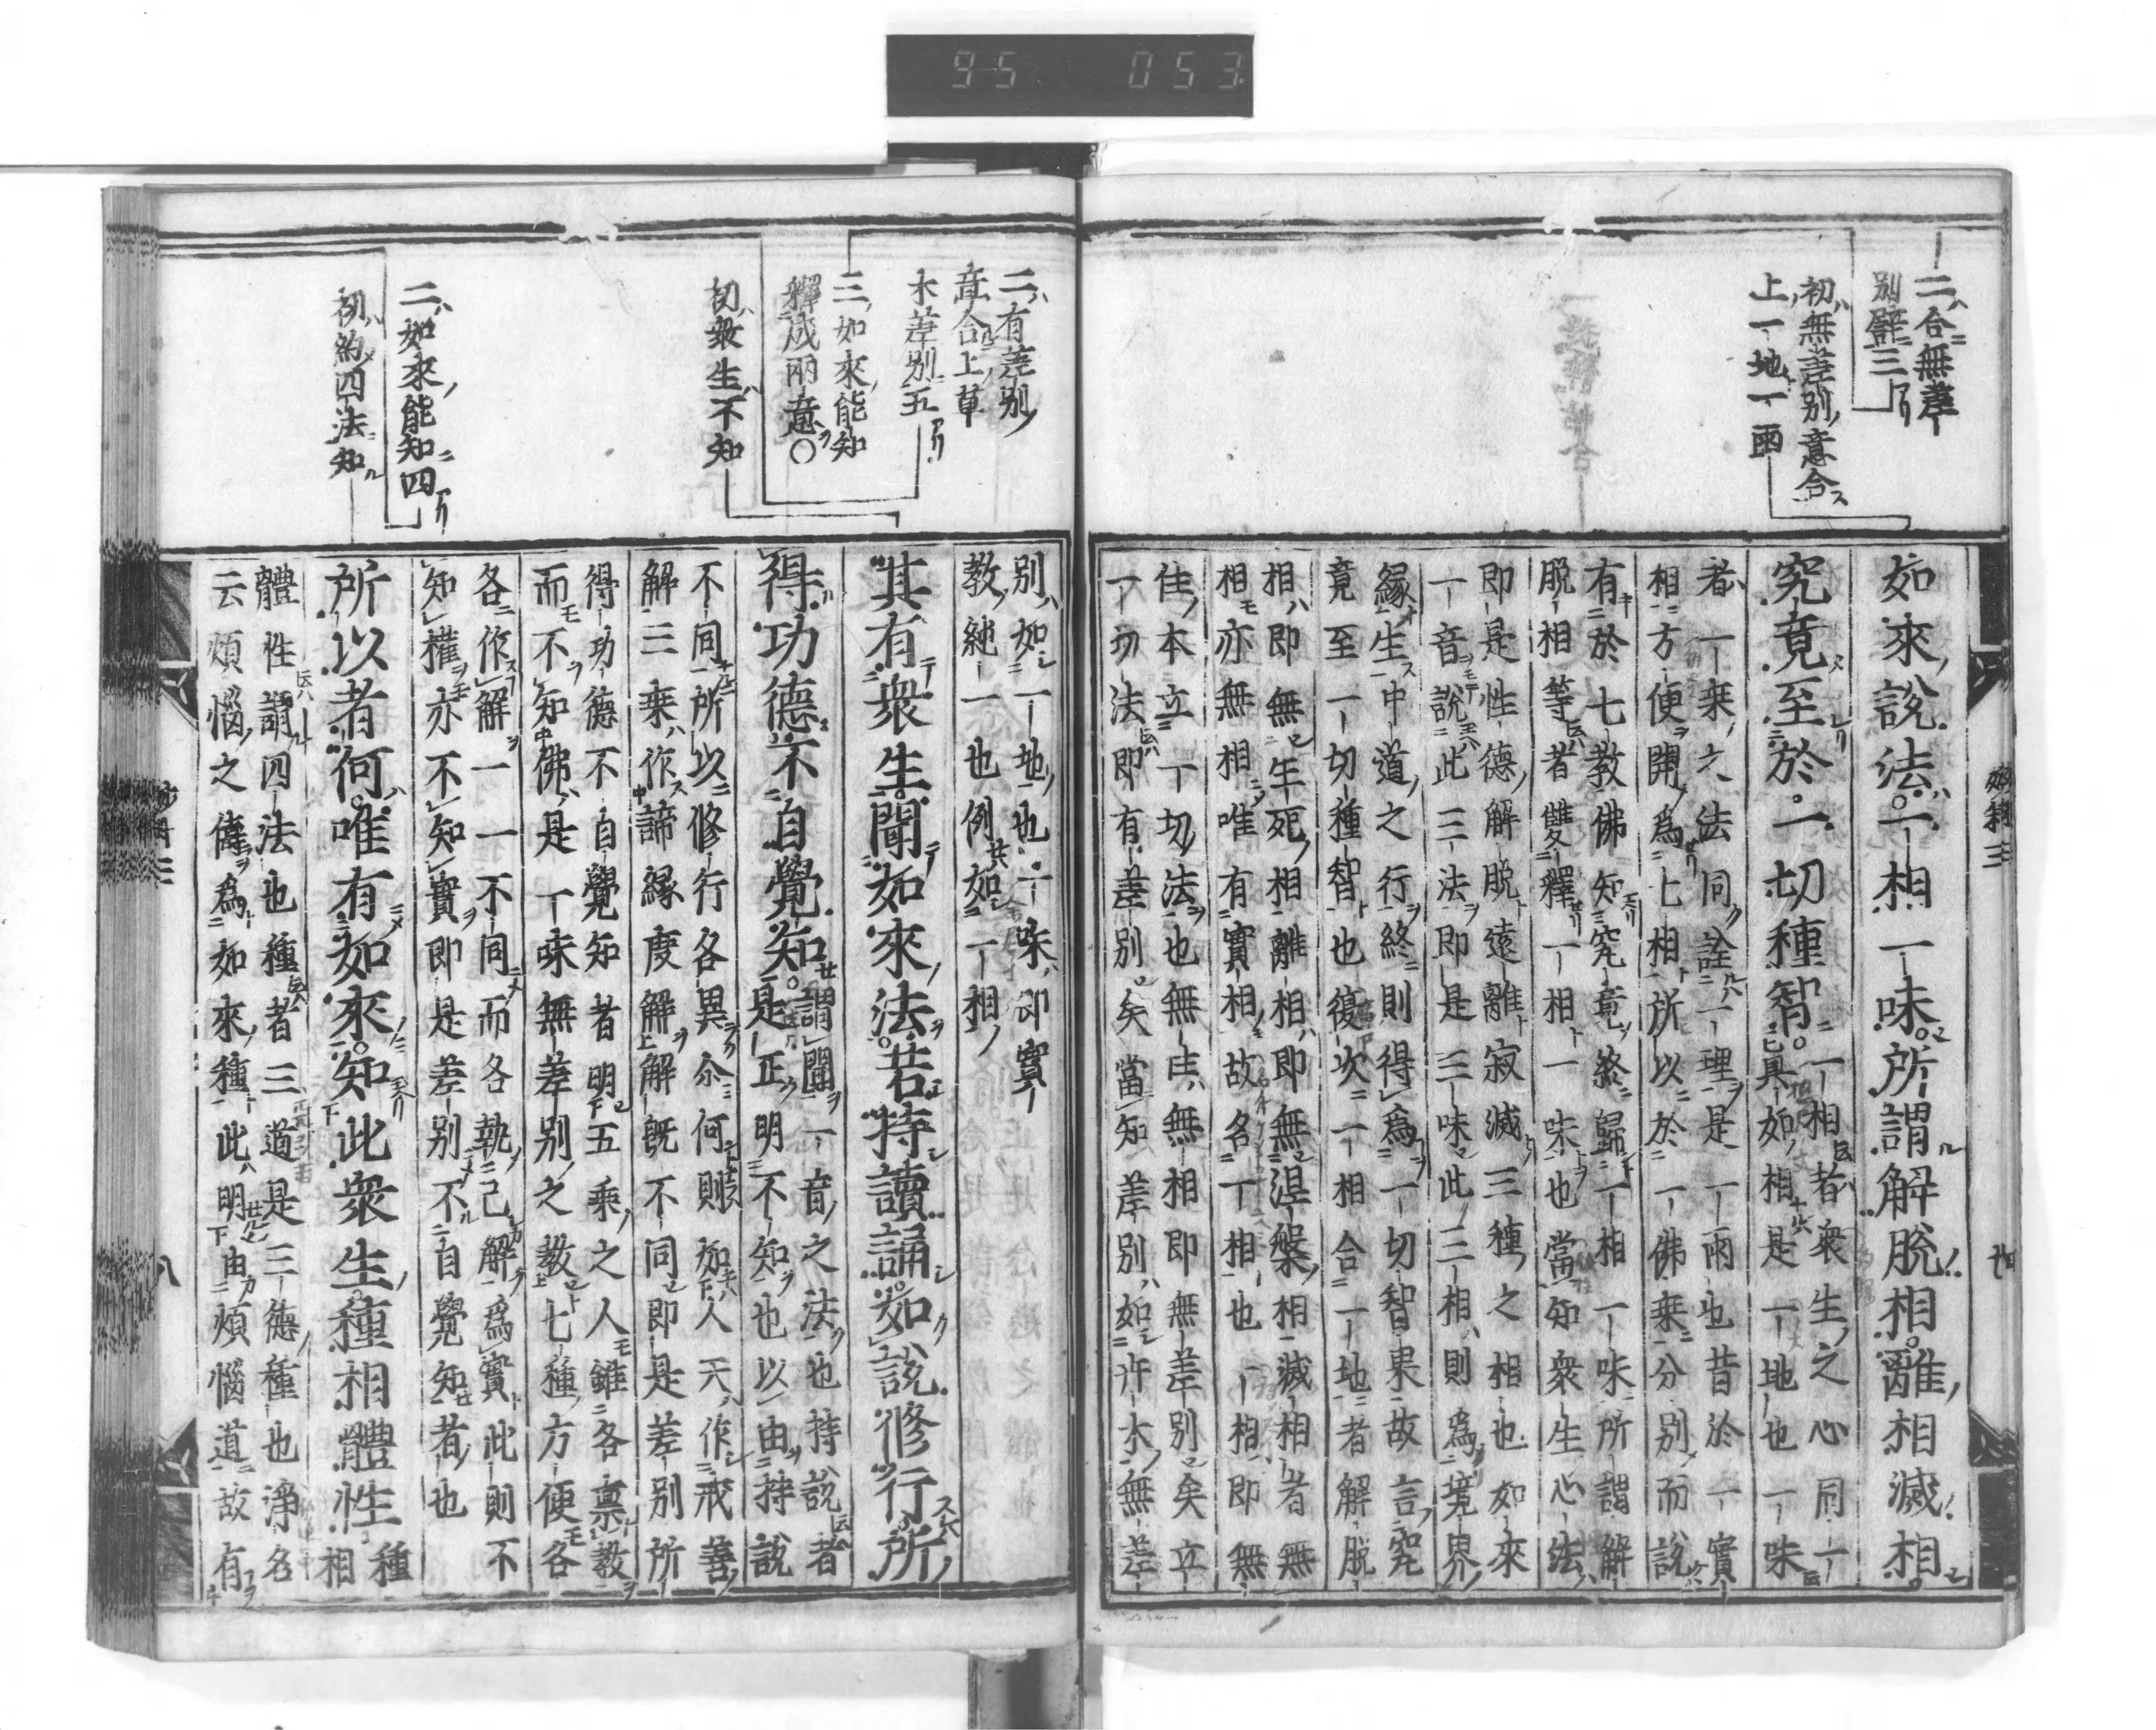 95 053
二合無差
別譬三
初無差別意合
上一地一雨
如來說法一相一味所謂解脫相離相滅相
究竟至於一切種智
一相者衆生之心同一
已具如相是一地也一味
者一乘六法同詮一理是一雨也昔於一實
相方便開爲七相所以於一佛乘分別而說
有於七教佛知究竟終歸一相一味所謂解
脫相等者雙釋一相一味也當知衆生心法
即是性德解脫遠離寂滅三種之相也如來
一音說此三法即是三味此三相則爲境界
緣生中道之行終則得爲一切智果故言究
竟至一切種智也復次一相合一地者解脫
相即無生死相離相即無涅槃相滅相者無
相亦無相唯有實相故名一相也一相即無
住本立一切法也無住無相即無差別矣立
一切法即有差別矣當知差別如卉木無差
妙科三
二有差別
意合上草
木差別五
三如來能知
釋成兩意○
初衆生不知
二如來能知四
初約四法知
別如一地也一味即實
教純一也例如一相
其有衆生聞如來法若持讀誦如說修行所
得功德不自覺知
謂聞一音之法也持說者
是正明不知也以由持說
不同所以修行各異尒何則如人天作戒善
解三乘作諦緣度解解既不同即是差別所
得功德不自覺知者明五乘之人雖各禀教
而不知佛是一味無差別之教七種方便各
各作解一一不同而各執己解爲實此則不
知權亦不知實即是差別不自覺知者也
所以者何唯有如來知此衆生種相體性
種
相
體性謂四法也種者三道是三德種也淨名
云煩惱之儔爲如來種此明由煩惱道故有
八